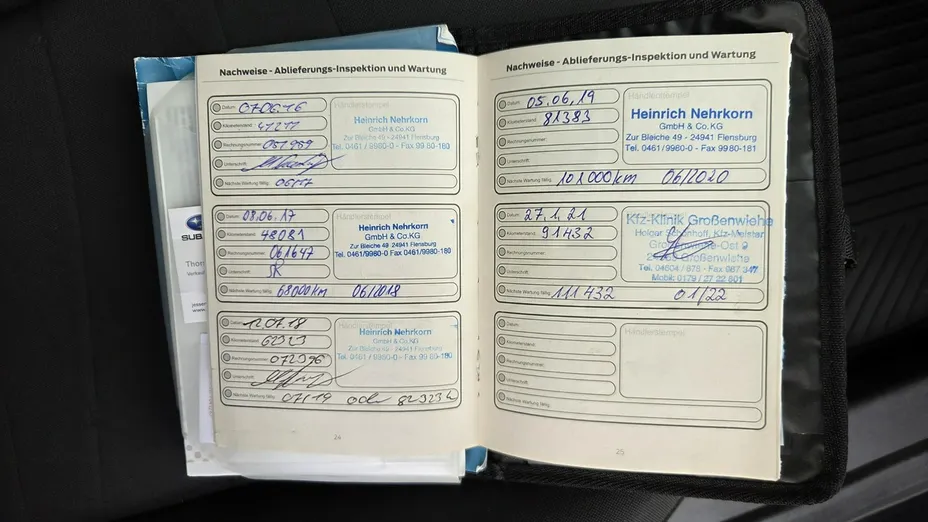 Nachweise - Ablieferungs-Inspektion und Wartung
Datum: 07.06.16
Händlerstempel
Kilometerstand:
Heinrich Nehrkorn
GmbH & Co.KG
Zur Bleiche 49 - 24941 Flensburg
Tel. 0461 / 9980-0 - Fax 99 80-180
Rechnungsnummer: 051969
Unterschrift:
Nächste Wartung fällig: 06/17
Datum: 08.06.17
Händlerstempel
Kilometerstand: 48081
Heinrich Nehrkorn
GmbH & Co.KG
Zur Bleiche 49 - 24941 Flensburg
Tel. 0461/9980-0 Fax 0461/9980-180
Rechnungsnummer: 061647
Unterschrift: SK
Nächste Wartung fällig: 68000km 06/2018
Datum: 12.07.18
Händlerstempel
Kilometerstand: 62323
Heinrich Nehrkorn
GmbH & Co.KG
Zur Bleiche 49 - 24941 Flensburg
Tel. 0461 / 9980-0 - Fax 99 80-180
Rechnungsnummer: 072396
Unterschrift:
Nächste Wartung fällig: 07/19 ode 82323
24
Nachweise - Ablieferungs-Inspektion und Wartung
Datum: 05.06.19
Händlerstempel
Kilometerstand: 81383
Heinrich Nehrkorn
GmbH & Co.KG
Zur Bleiche 49 - 24941 Flensburg
Tel. 0461 / 9980-0 - Fax 99 80-180
Rechnungsnummer:
Unterschrift:
Nächste Wartung fällig: 101000km 06/2020
Datum: 27.1.21
Händlerstempel
Kilometerstand: 91432
Kfz-Klinik Großenwiehe
Helgar Schonhoff, Kfz-Meister
Großenwiehe-Ost 9
Großenwiehe
Tel. 04604 / 878 - Fax 987 347
Mobil: 0179 / 27 22 601
Rechnungsnummer:
Unterschrift:
Nächste Wartung fällig: 111432 01/22
Datum:
Händlerstempel
Kilometerstand:
Rechnungsnummer:
Unterschrift:
Nächste Wartung fällig:
25
SUB
Thor
Verkauf